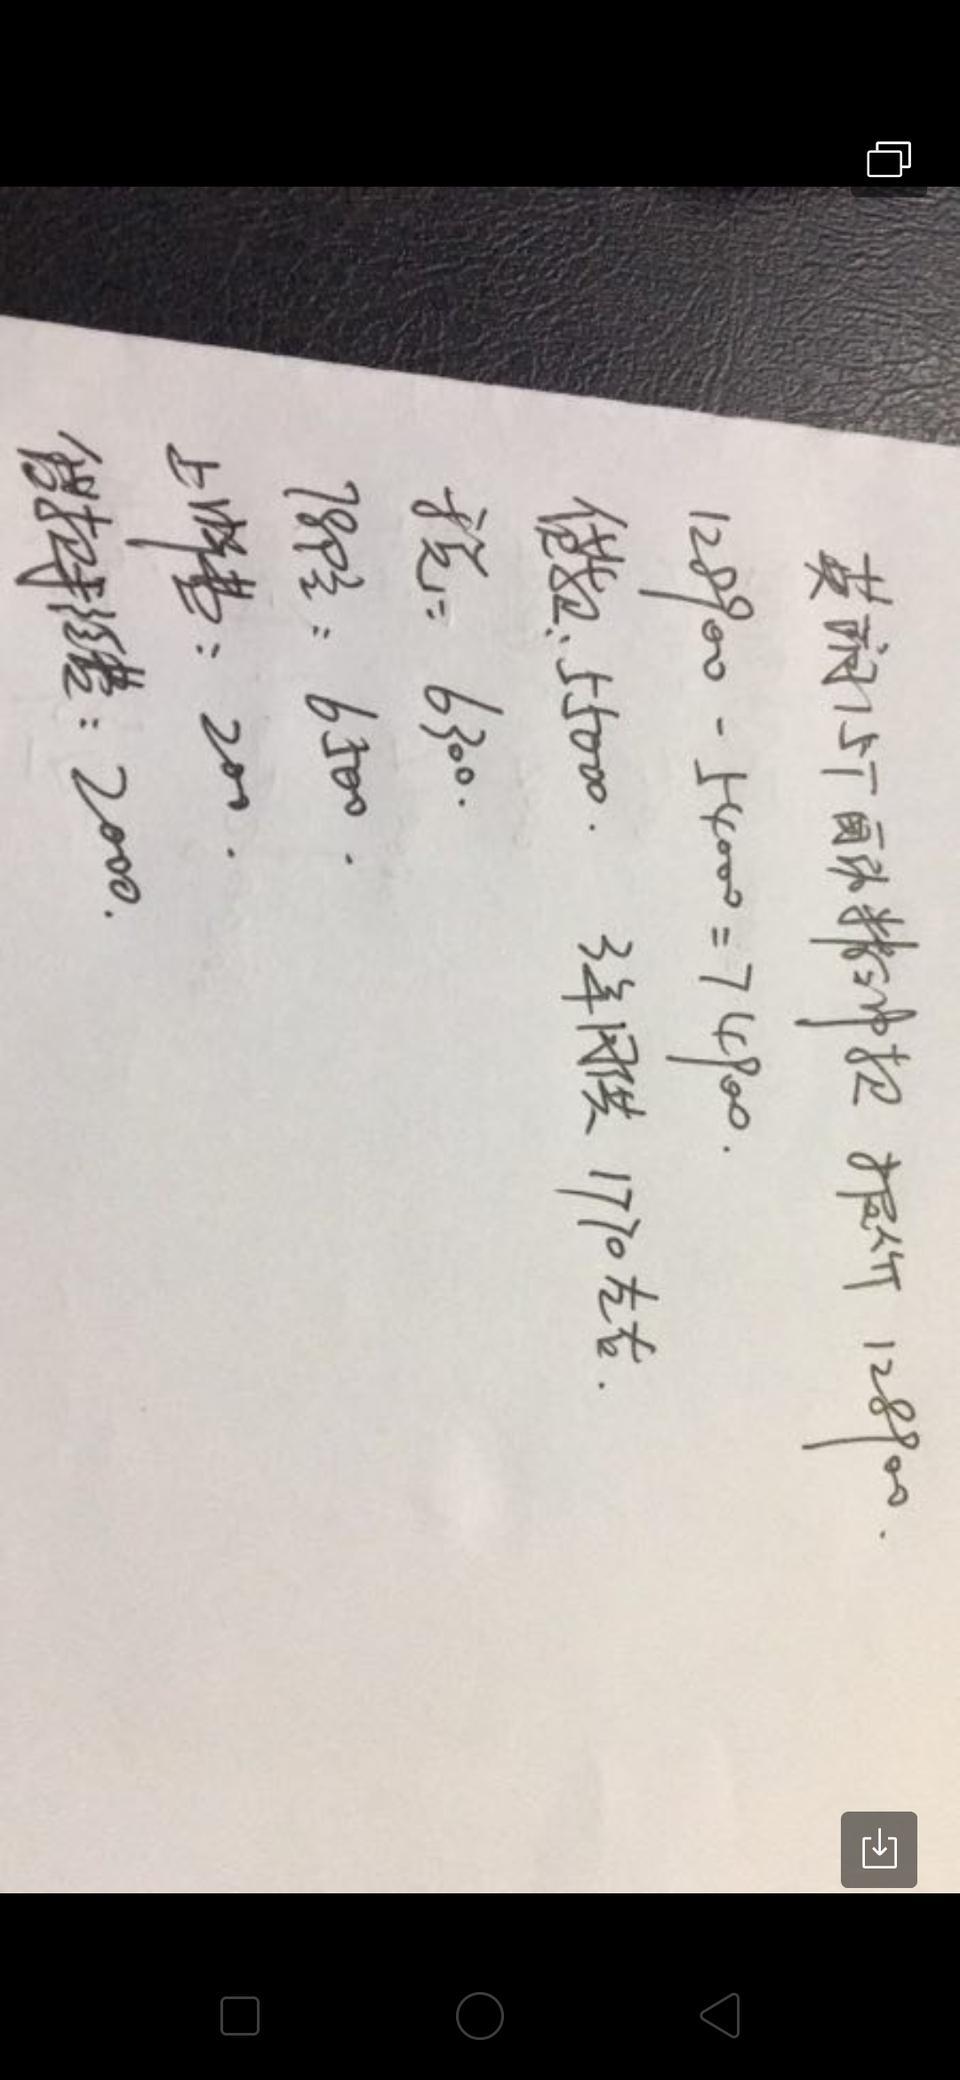 英朗15T 两驱精神型 报价 128900.
128900 - 54000 = 74900.
贷款: 55000. 3年月供 1770左右.
税: 6300.
保险: 6500.
上牌费: 200.
贷款手续费: 2000.